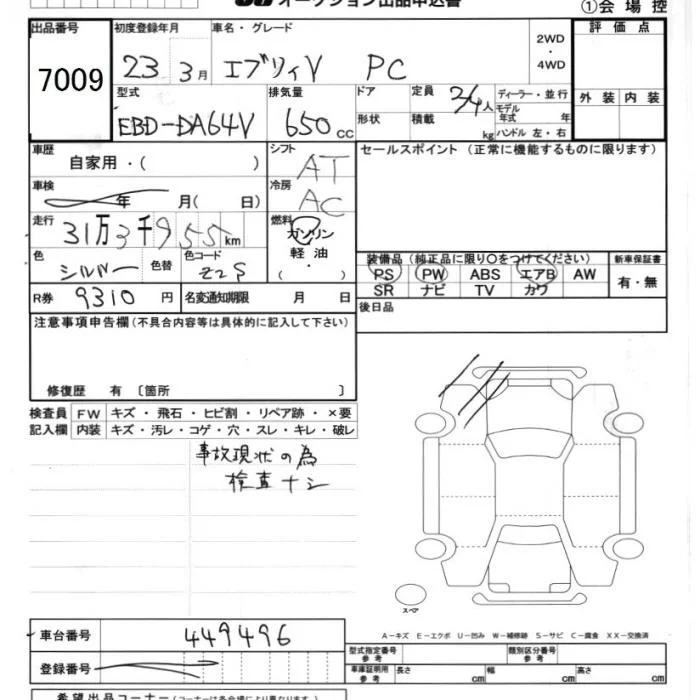 オークション出品申込書
①会場控
出品番号 初度登録年月 車名・グレード
7009 23 3月 エブリィV PC 2WD・4WD
評価点
外装 内装
型式 排気量 ドア 定員 ディーラー・並行
EBD-DA64V 650cc 形状 積載 人 kg モデル年式 年
ハンドル 左・右
車歴 シフト セールスポイント(正常に機能するものに限ります)
自家用・( ) AT
車検 年 月( 日) 冷房 AC
走行 31万3千955km 燃料 ガソリン
軽油
・( )
色 シルバー 色替 色コード Z2S
装備品(純正品に限り〇をつけてください) 新車保証書
PS PW ABS エアB AW 有・無
SR ナビ TV カワ
R券 9310円 名変通知期限 月 日
後日品
注意事項申告欄(不具合内容等は具体的に記入して下さい)
修復歴 有〔箇所 〕
検査員 FW キズ・飛石・ヒビ割・リペア跡・×要
記入欄 内装 キズ・汚レ・コゲ・穴・スレ・キレ・破レ
事故現状の為
検査ナシ
スペア
A-キズ E-エクボ U-凹み W-補修跡 S-サビ C-腐食 XX-交換済
車台番号 449496
型式指定番号 参考 類別区分番号 参考
登録番号
車庫証明用 参考 長さ cm 幅 cm 高さ cm
希望出品コーナー(コーナーは各会場により異なります)